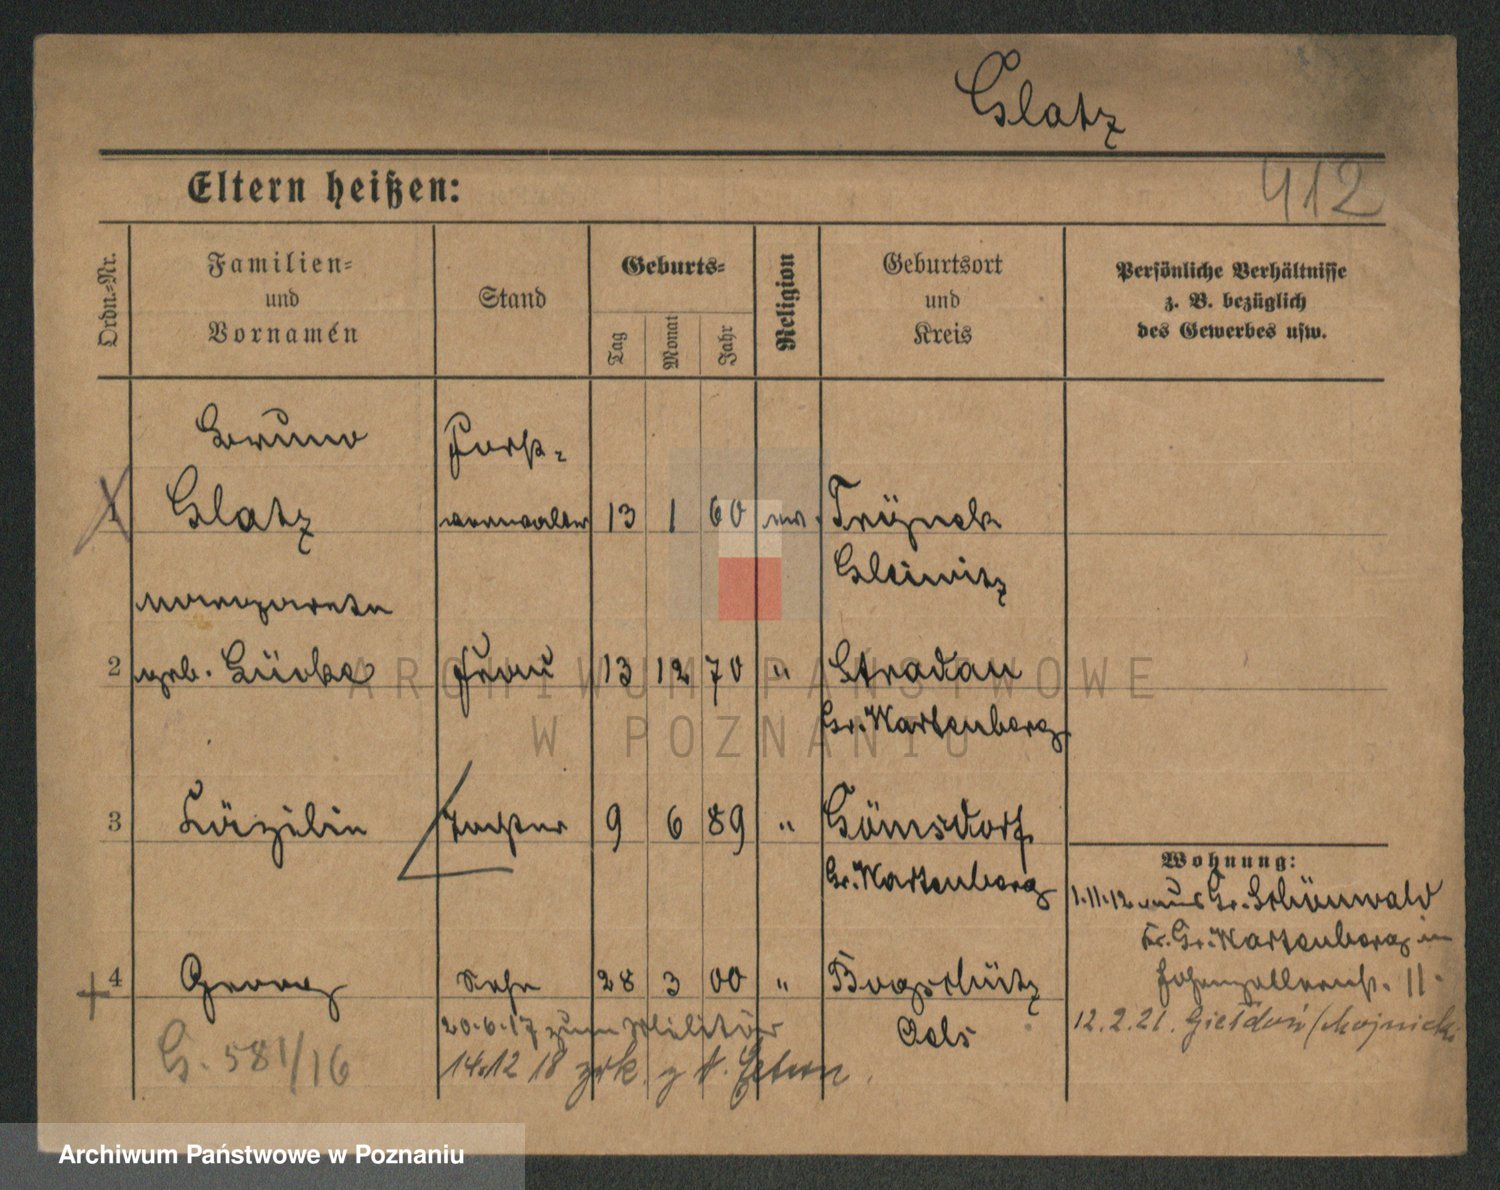 Glatz
412
Eltern heißen:
Ordn.-Nr.
Familien-
und
Vornamen
Stand
Geburts-
Tag
Monat
Jahr
Religion
Geburtsort
und
Kreis
Persönliche Verhältnisse
z. B. bezüglich
des Gewerbes usw.
Bruno
Forst-
1 Glatz verwalter 13 1 60 ev.
Gleiwitz
Margarete
2 geb. Frau 13 12 70 " Stradam
Gr. Wartenberg
3 Käzilie Tochter 9 6 89 "
Gr. Wartenberg
Wohnung:
1.11.12 aus Gr. Schönwald
Kr. Gr. Wartenberg in
Hohenzollernst. 11.
4 Georg Sohn 28 3 00 " Bogschütz
Oels
20.6.17 zum Militär
14.12 18 zrk.
12.2.21.
G. 581/16
ARCHIWUM PAŃSTWOWE
W POZNANIU
Archiwum Państwowe w Poznaniu